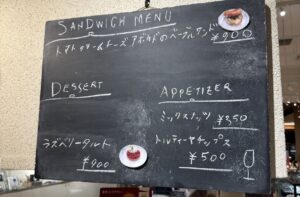 SANDWICH MENU
トマトクリームチーズアボカドのベーグルサンド
¥900
DESSERT
ラズベリータルト
¥900
APPETIZER
ミックスナッツ
¥350
トルティーヤチップス
¥500